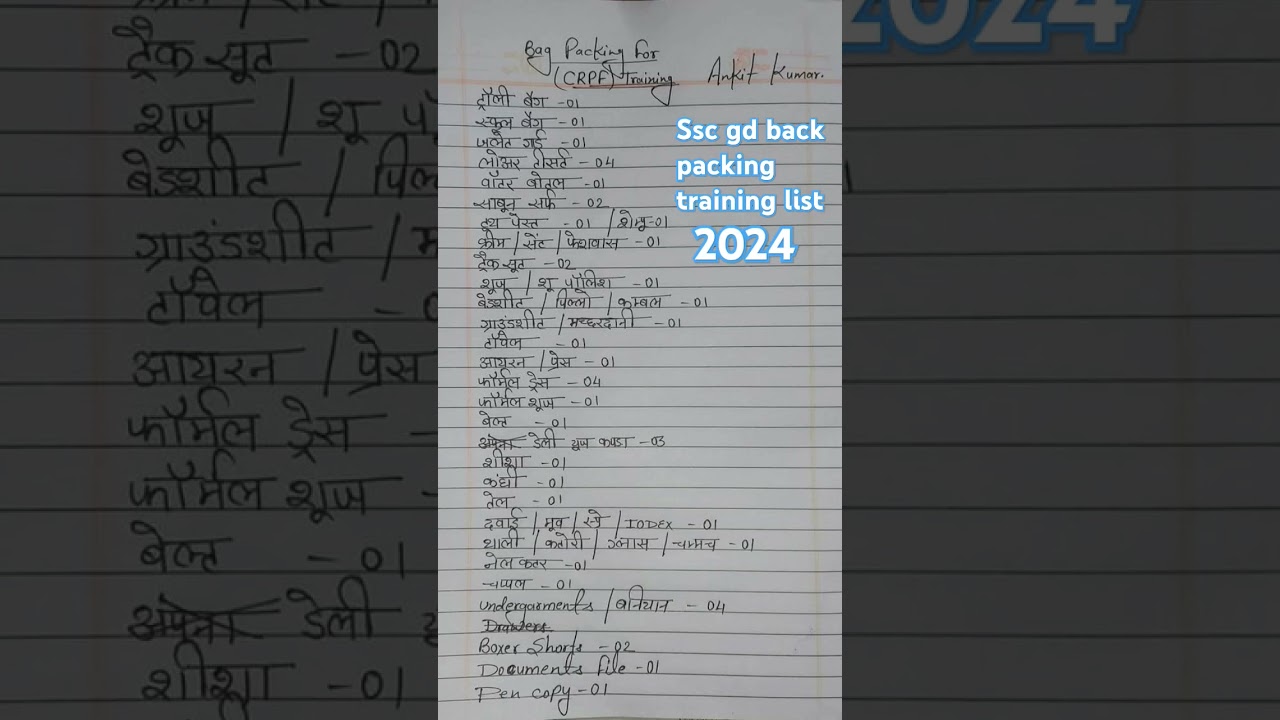 Bag Packing For
(CRPF) Training Ankit Kumar.
ट्रॉली बैग -01
स्कूल बैग -01
गार्ड -01
लोअर टीसर्ट - 04
वॉटर बोतल -01
साबुन सर्फ - 02
टूथ पेस्ट -01 / शेम्पू-01
क्रीम / सेंट / फेशवास -01
ट्रैकसूट -02
शूज / शू पॉलिश -01
बेडशीट / पिल्लो / कम्बल -01
ग्राउंडशीट / मच्छरदानी -01
टॉवेल -01
आयरन / प्रेस - 01
फॉर्मल ड्रेस - 04
फॉर्मल शूज -01
बेल्ट -01
अपना डेली यूज कपडा -03
शीशा -01
कंघी -01
तेल -01
दवाई / मूव / स्प्रे / IODEX - 01
थाली / कटोरी / ग्लास / चम्मच - 01
नेल कटर -01
चप्पल - 01
undergarments / बनियान - 04
Drawers
Boxer Shorts -02
Documents file -01
Pen copy -01
Ssc gd back
packing
training list
2024
2024
ट्रैक सूट -02
शूज / शू पॉ
बेडशीट / पिल
ग्राउंडशीट / म
टॉवेल
आयरन / प्रेस
फॉर्मल ड्रेस
फॉर्मल शूज
बेल्ट -01
अपना डेली
शीशा -01